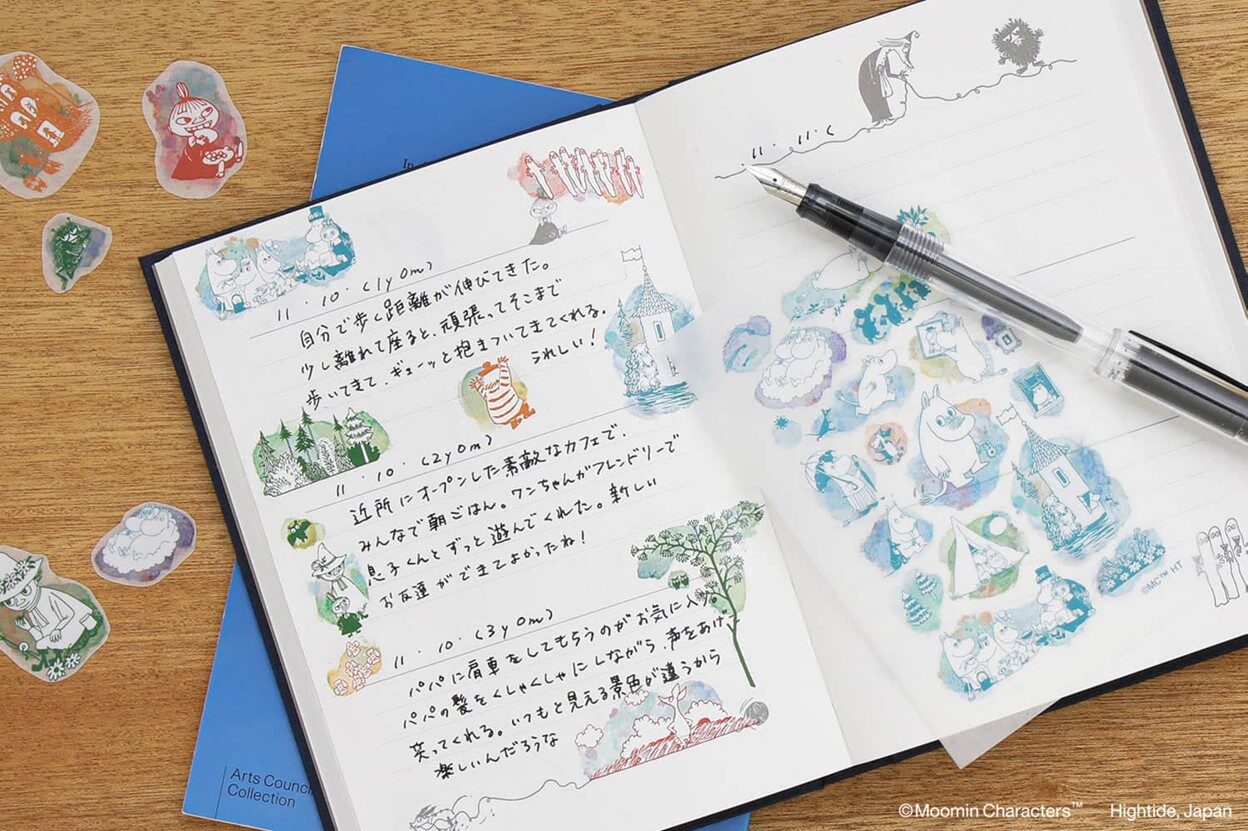 11・10・(1y0m)
自分で歩く距離が伸びてきた。
少し離れて座ると、頑張ってそこまで
歩いてきて、ギューッと抱きついてきてくれる。
うれしい！
11・10・(2y0m)
近所にオープンした素敵なカフェで、
みんなで朝ごはん。ワンちゃんがフレンドリーで
息子くんとずっと遊んでくれた。新しい
お友達ができてよかったね！
11・10・(3y0m)
パパに肩車をしてもらうのがお気に入り。
パパの髪をくしゃくしゃにしながら、声をあげて
笑ってくれる。いつもと見える景色が違うから
楽しいんだろうな
11・11・(
©MC™ HT
Arts Council
Collection
©Moomin Characters™ Hightide, Japan